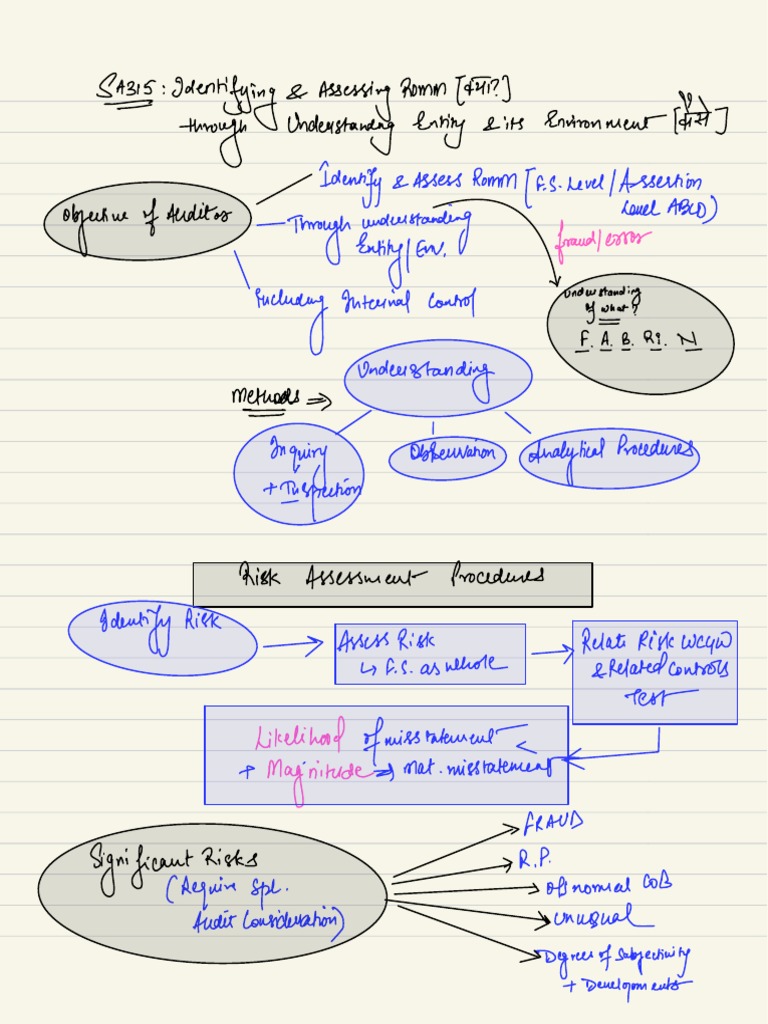 SA315: Identifying & Assessing Romm [क्या?]
through Understanding Entity & its Environment [कैसे]
Identify & Assess Romm [F.S. Level / Assertion
Level ABCD)
Objective of Auditor
Through understanding
Entity/Env.
fraud/error
Including Internal Control
Understanding
of what?
F. A. B. Ri. N
Understanding
Methods ⇒
Inquiry
+ Inspection
Observation
Analytical Procedures
Risk Assessment Procedures
Identify Risk
Assess Risk
↳ F.S. as whole
Relate Risk WCGW
& Related Controls
Test
Likelihood of misstatement
+ Magnitude ⇒ Mat. misstatement
Significant Risks
(Require Spl.
Audit Consideration)
FRAUD
R.P.
o/s normal COB
unusual
Degree of Subjectivity
+ Developments